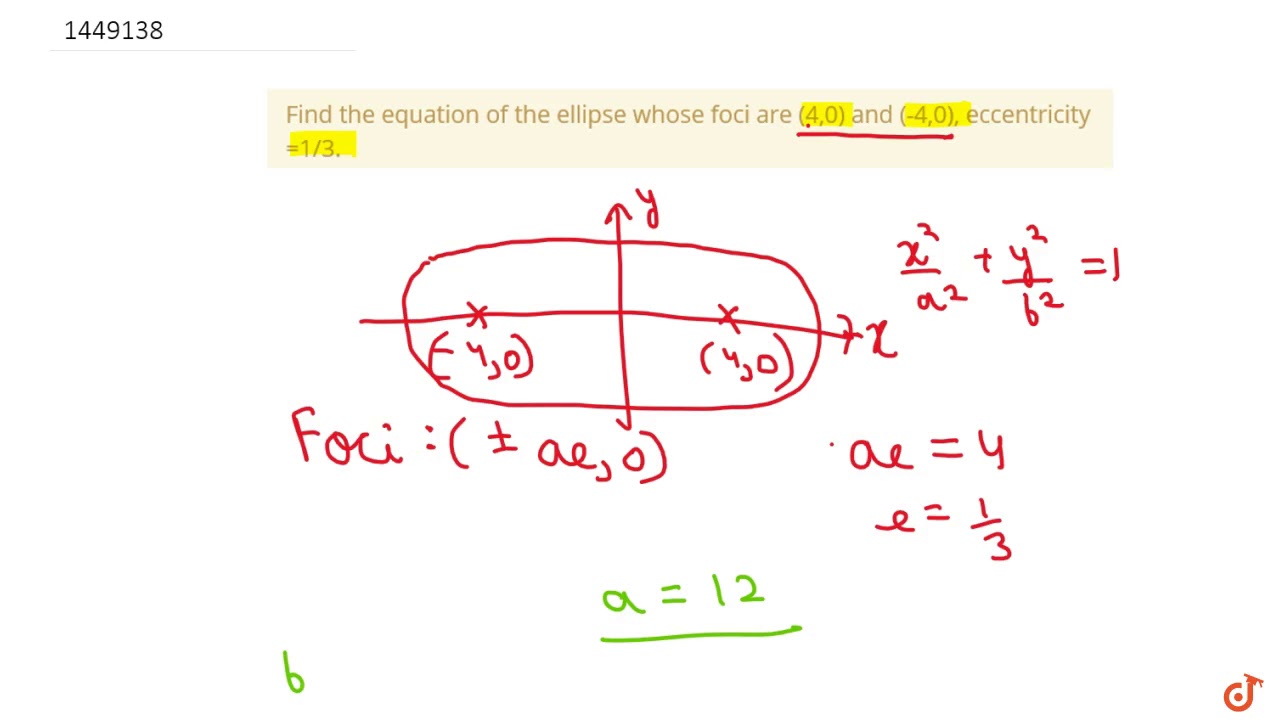 1449138
Find the equation of the ellipse whose foci are (4,0) and (-4,0), eccentricity
=1/3.
y
x²/a² + y²/b² = 1
x
(-4,0) (4,0)
Foci : (± ae, 0)
ae = 4
e = 1/3
a = 12
b